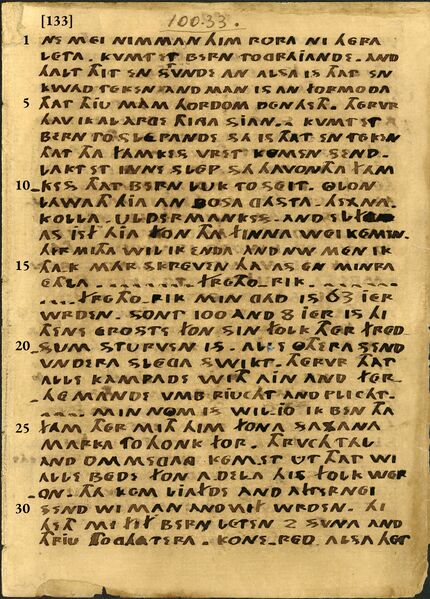 [133] 100.33.
1 NE MEI NIMMAN HIM RORA NI HERA
LETA. KVMT ET BERN TOGHIANDE. AND
HALT THIT EN SÜNDE AN ALSA IS THAT EN
KWAD TEKEN AND MAN IS AN FORMODA
5 THAT HIU MAM HORDOM DEN HETH. THERVR
HAV IK AL ARGE THINGA SIAN. KVMT ET
BERN TO SLEPANDE SA IS THAT EN TEKEN
THAT THA FAMKES VRST KEMEN SEND.
LAKT ET INNE SLEP SA HAVON THA FAM
10 KES THAT BERN LUK TO SEIT. OLON
LAWATH HIA AN BOSA GASTA. HEXNA.
KOLLA. ULDERMANKES. AND ELFUN
AS IST HIA FON THA FINNA WEI KEMEN.
HYR MITHA WIL IK ENDA AND NW MEN IK
15 THA.K MAR SKREVEN HA AS EN MINRA
ETHLA. FRETHO.RIK.
FRETHO.RIK MIN GAD IS 63 IER
WRDEN. SONT 100 AND 8 IER IS HI
THENE EROSTE FON SIN FOLK THER FRED
20 SUM STURVEN IS. ALLE OTHERA SEND
VNDERA SLEGA SWIKT. THERVR THAT
ALLE KAMPADE WITH AIN AND FER
HEMANDE VMB RIUCHT AND PLICHT.
MIN NOM IS WIL.IO IK BEN THA
25 FAM THER MITH HIM FONA SAXANA
MARKA TO HONK FOR. THRVCH TAL
AND OMMEGANG KEM.ET UT THAT WI
ALLE BEDE FON ADELA HIS FOLK WER
ON. THA KEM LIAFDE AND AFTERNEI
30 SEND WI MAN AND WIF WRDEN. HI
HETH MI FIF BERN LETEN 2 SUNA AND
THRIU TOGHATERA. KONE.RED ALSA HET